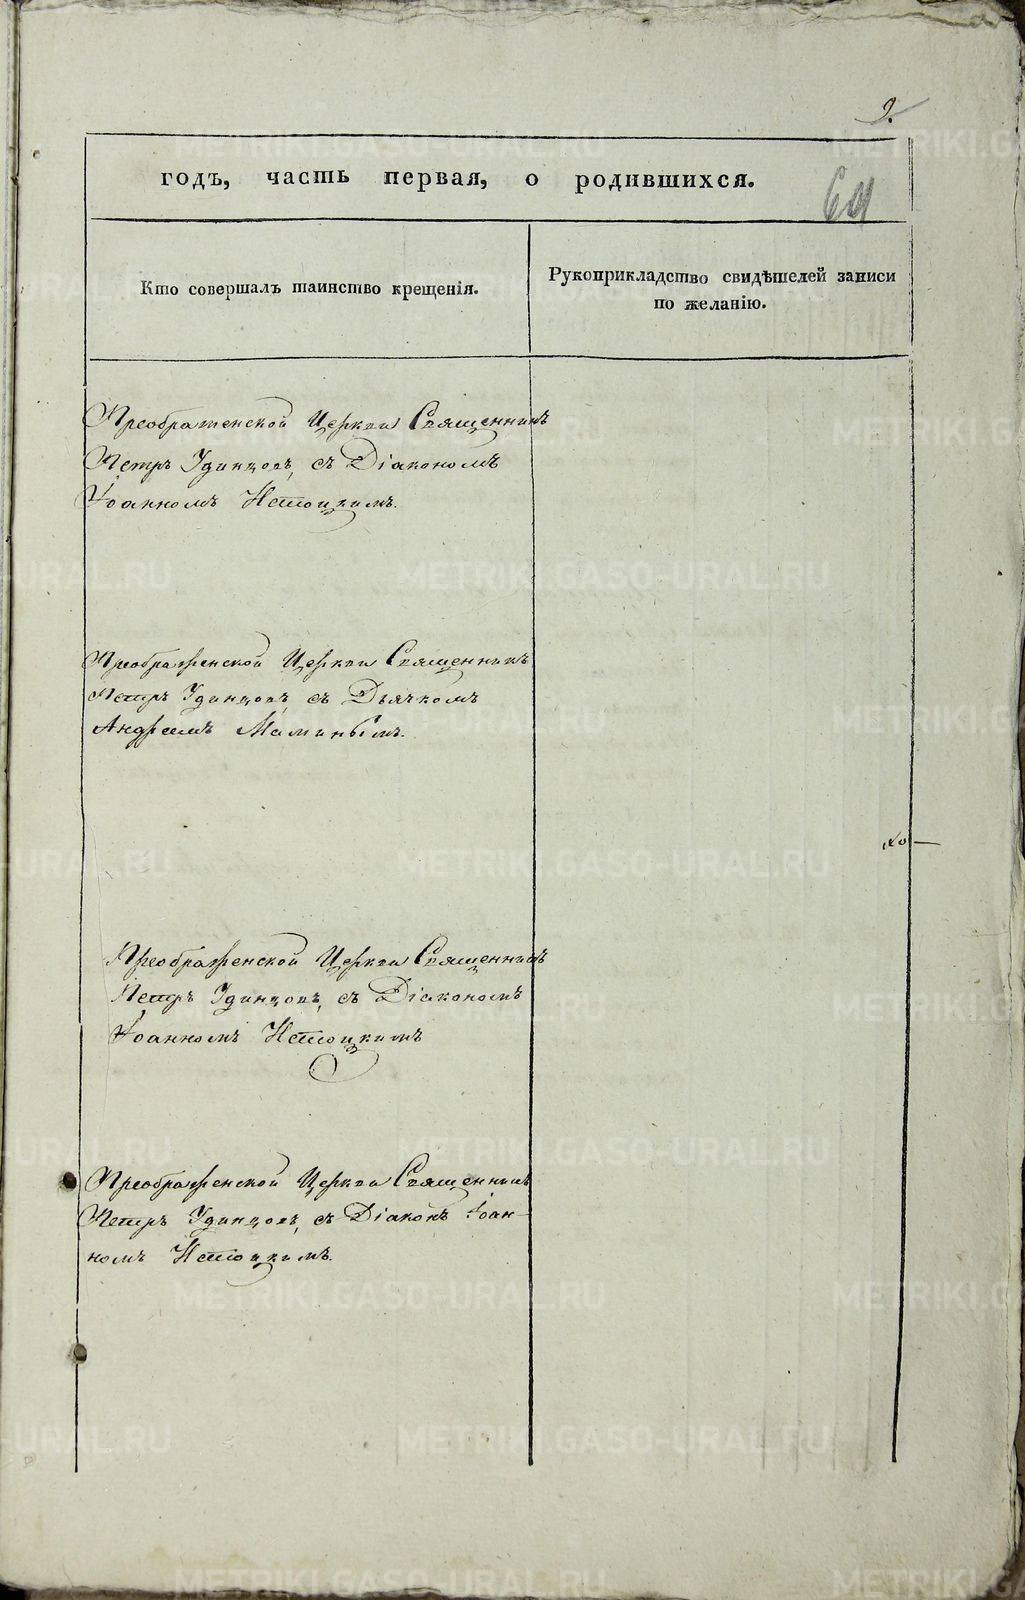 9.
годъ, часть первая, о родившихся.
64
Кто совершалъ таинство крещенія.
Рукоприкладство свидѣтелей записи
по желанію.
Преображенской Церкви Священникъ
Петръ Удинцовъ, съ Діакономъ
Іоанномъ
Преображенской Церкви Священникъ
Петръ Удинцовъ, съ Дьячкомъ
Андреемъ Маминымъ.
Преображенской Церкви Священникъ
Петръ Удинцовъ, съ Діакономъ
Іоанномъ
Преображенской Церкви Священникъ
Петръ Удинцовъ, съ Діаконъ Іоан-
номъ
METRIKI.GASO-URAL.RU